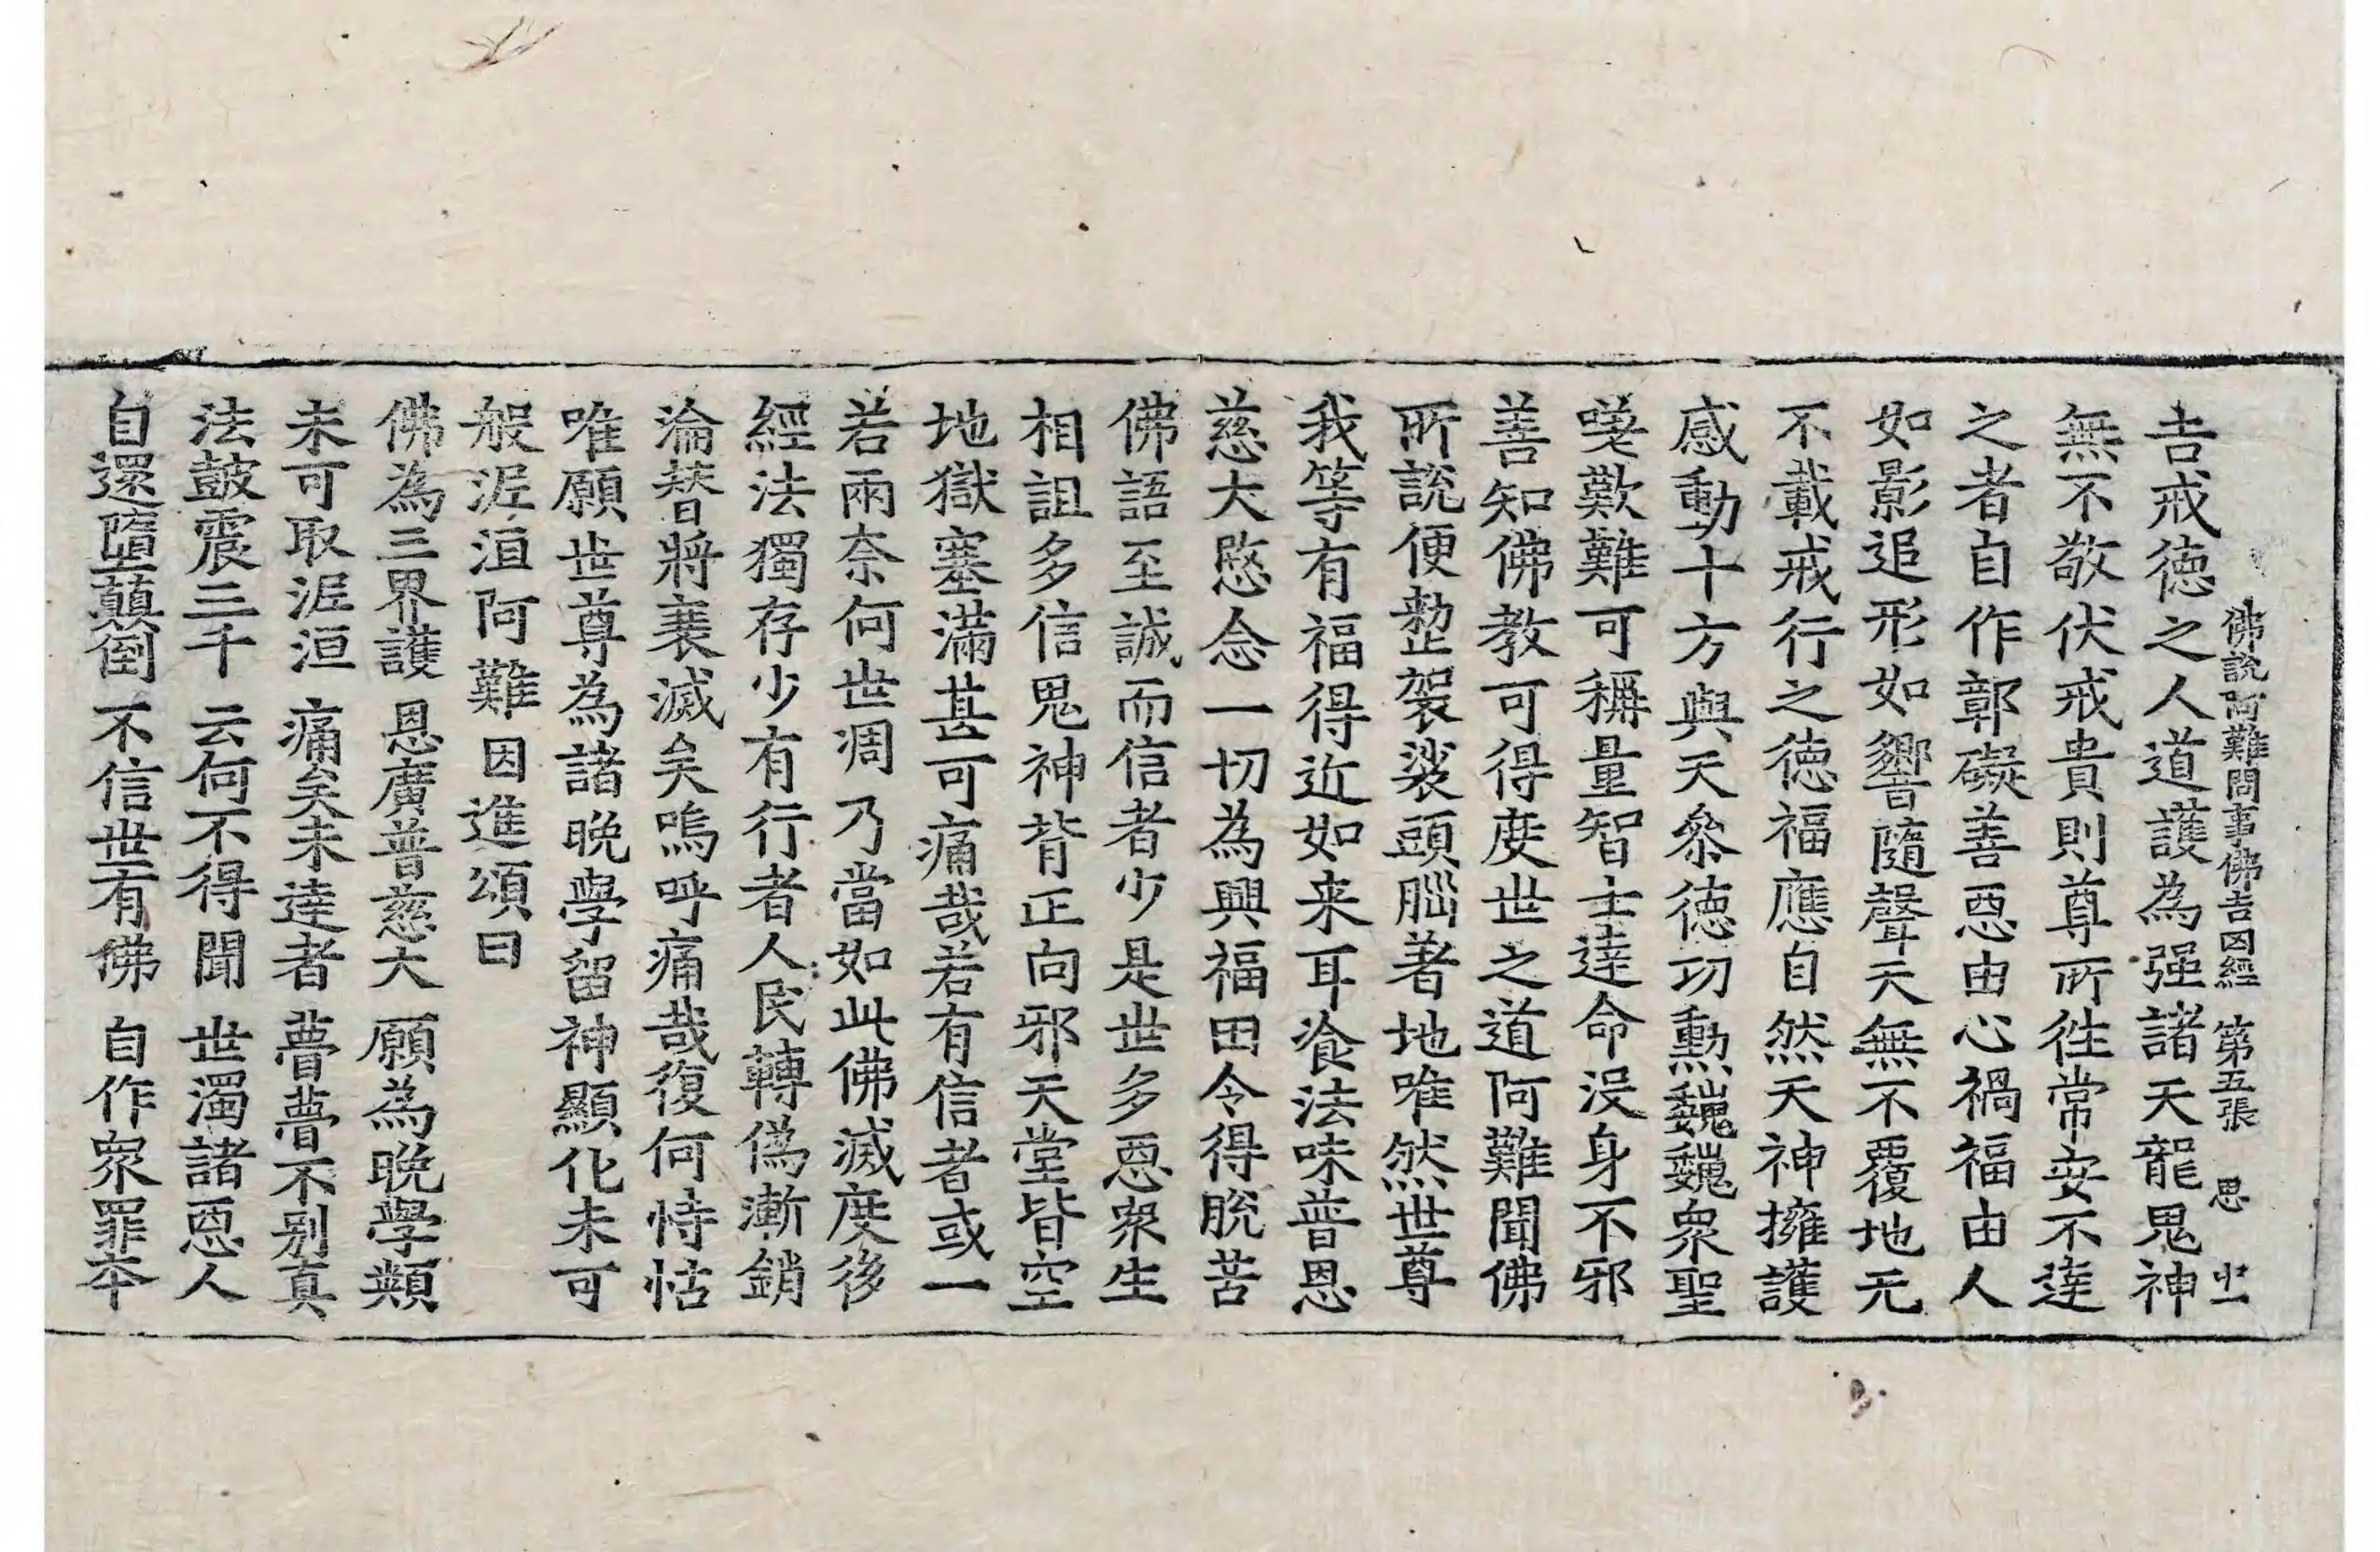 佛說阿難問事佛吉凶經 第五張 思
吉戒德之人道護為强諸天龍鬼神
無不敬伏戒貴則尊所往常安不達
之者自作鄣礙善惡由心禍福由人
如影追形如響隨聲天無不覆地无
不載戒行之德福應自然天神擁護
感動十方與天參德功勳巍巍衆聖
嘆歎難可稱量智士達命没身不邪
善知佛教可得度世之道阿難聞佛
所說便整袈裟頭腦著地唯然世尊
我等有福得近如来耳飡法味普恩
慈大愍念一切為興福田令得脫苦
佛語至誠而信者少是世多惡衆生
相詛多信鬼神背正向邪天堂皆空
地獄塞滿甚可痛哉若有信者或一
若兩奈何世凋乃當如此佛滅度後
經法獨存少有行者人民轉偽漸銷
淪替將衰滅矣嗚呼痛哉復何恃怙
唯願世尊為諸晚學留神顯化未可
般泥洹阿難因進頌曰
佛為三界護 恩廣普慈大 願為晚學類
未可取泥洹 痛矣未達者 瞢瞢不别真
法鼓震三千 云何不得聞 世濁諸惡人
自還墮顛倒 不信世有佛 自作衆罪本